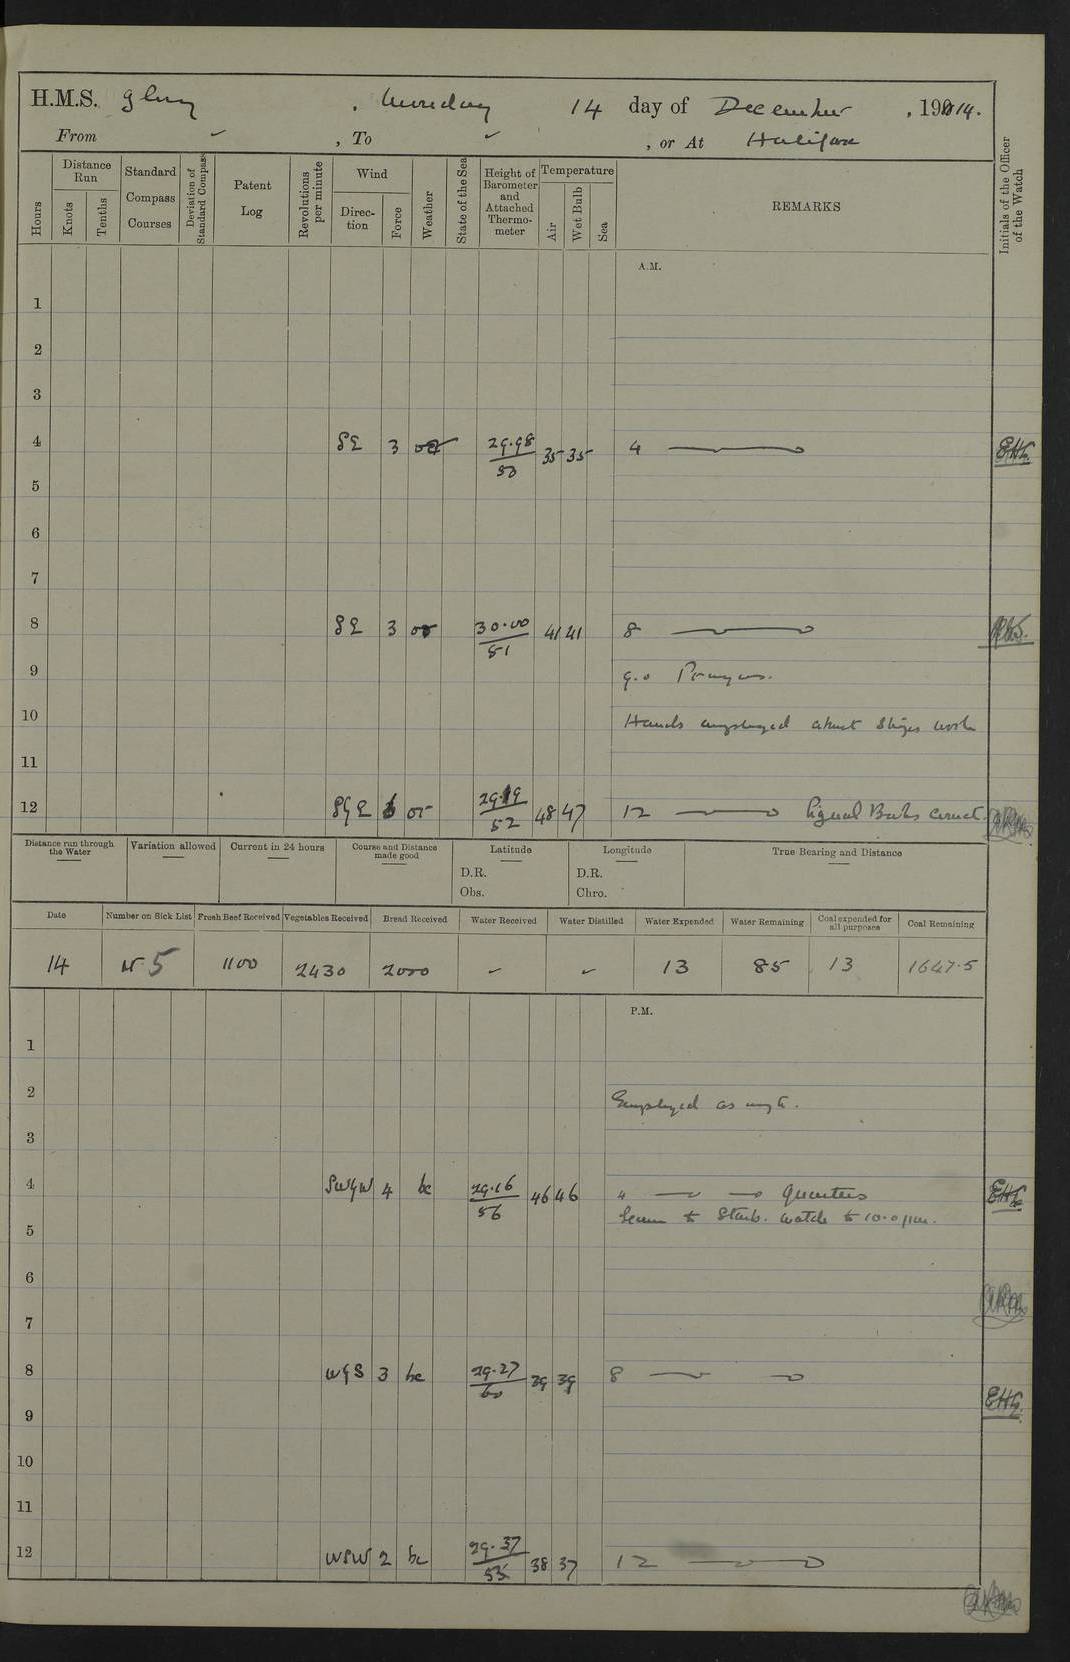 H.M.S. Glory, Monday 14 day of December, 1914.
From ✓, To ✓, or At Halifax
Hours
Distance Run
Knots
Tenths
Standard Compass Courses
Deviation of Standard Compass
Patent Log
Revolutions per minute
Wind
Direction
Force
Weather
State of the Sea
Height of Barometer and Attached Thermometer
Temperature
Air
Wet Bulb
Sea
REMARKS
Initials of the Officer of the Watch
A.M.
1
2
3
4 SE 3 29.98 35 35 4 EHG.
50
5
6
7
8 SE 3 30.00 41 41 8
51
9 9.0 Prayers.
10 Hands employed about Ships work
11
12 SEE or 48 47 12 Signal Books correct.
52
Distance run through the Water
Variation allowed
Current in 24 hours
Course and Distance made good
Latitude
D.R.
Obs.
Longitude
D.R.
Chro.
True Bearing and Distance
Date Number on Sick List Fresh Beef Received Vegetables Received Bread Received Water Received Water Distilled Water Expended Water Remaining Coal expended for all purposes Coal Remaining
14 5 1100 2430 2000 ✓ ✓ 13 85 13 1647.5
P.M.
1
2 Employed as reqte.
3
4 SWyW 4 bc 29.16 46 46 4 Quarters EHG
56
Leave to Starb. watch to 10.0 pm.
5
6
7
8 WyS 3 bc 29.27 39 39 8
60
EHG.
9
10
11
12 WSW 2 bc 29.37 38 37 12